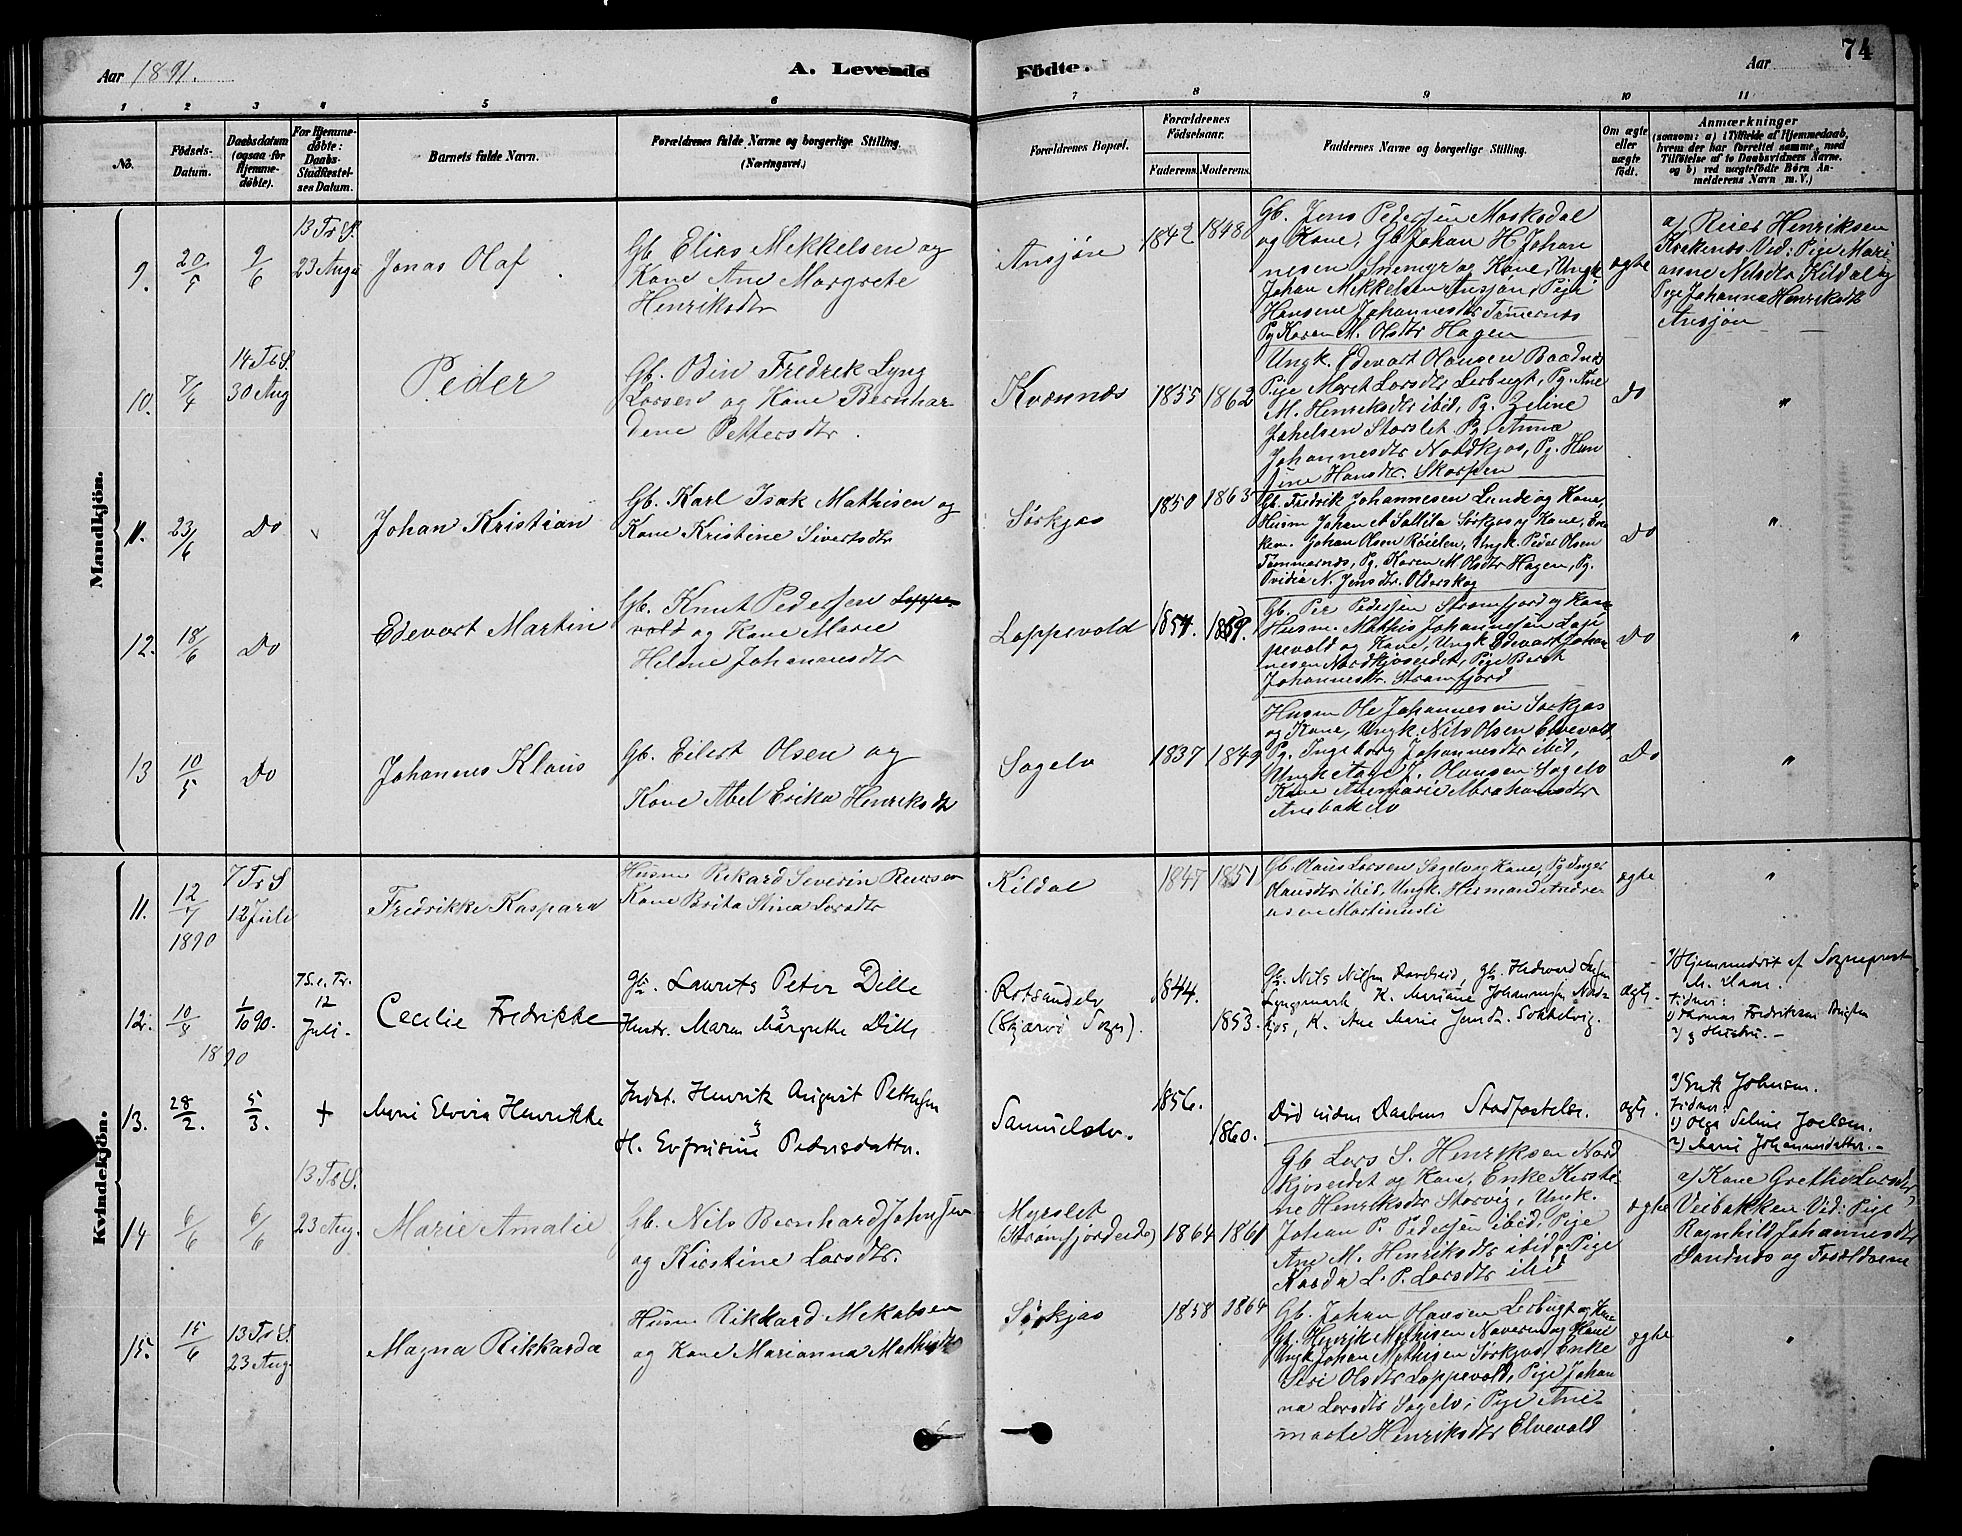 Aar 1891.
A. Levende Födte.
Aar
74
1 2 3 4 5 6 7 8 9 10 11
No.
Födsels-
Datum.
Daabsdatum
(ogsaa for
Hjemme-
döbte).
For Hjemme-
döbte:
Daabs-
Stadfæstel-
ses Datum.
Barnets fulde Navn.
Forældrenes fulde Navne og borgerlige Stilling.
(Næringsvei.)
Forældrenes Bopæl.
Forældrenes
Födselsaar.
Faderens. Moderens.
Faddernes Navne og borgerlige Stilling.
Om ægte
eller
uægte
födt.
Anmærkninger
(saasom: a) i Tilfælde af Hjemmedaab,
hvem der har forrettet samme, med
Tilföielse af to Daabsvidners Navne.
og b) ved uægtefödte Börn An-
melderens Navn m. V.)
Mandkjön.
9.
20/5
9/6
13 Tr S.
23 Aug
Jonas Olaf
Gb. Elias Mikkelsen og
Kone Ane Margrete
Henriksdtr
Ansjøn
1842 1848
Gb. Jens Pedersen Maskedal
og Kone, Gb Johan H Johan
nesen Snemyr og Kone, Ungk
Johan Mikkelsen Ansjøn, Pige
Hansine Johannesdtr Tømernes
Pg Karen M. Olsdtr Hagen
ægte
a) Reier Henriksen
Vid: Pige Mari-
anne Nilsdtr Kildal og
Pige Johanna Henriksdtr
Ansjøn
10.
7/4
14 Tr S.
30 Aug
Peder
Gb. Odin Fredrik Lyng
Larsen og Kone Bernhar-
dine Pettersdtr.
Kvænnæs
1855 1862
Ungk. Edevart Hansen
Pige Maret Larsdtr Lerbugt, Pg. Ane
M. Henriksdtr ibid, Pg. Zeline
Johelsen Storslet. Pg Anna
Johannesdtr Nordkjos, Pg. Han
sine Hansdtr. Skarpen
do
"
11.
23/6
Do
Johan Kristian
Gb. Karl Isak Mathisen og
Kone Kristine Sivertsdtr
Sørkjos
1850 1863
Gb. Fredrik Johannesen Lunde og Kone,
Husm Johan A Sørkjos og Kone, En-
kem. Johan Olsen Røielen, Ungk. Peder Olsen
Tømmernes, Pg. Karen M Olsdtr Hagen, Pg.
N. Jensdtr. Olderskog
Do
"
12.
18/6
Do
Edevart Martin
Gb. Knut Pedersen Loppe-
vold og Kone Marie
Helene Johannesdtr
Loppevold
1854. 1859.
Gb. Per Pedersen Strømfjord og Kone
Husm. Mathis Johannesen Lop
pevold og Kone, Ungk Edevart Johan
nesen Nordkjoseidet, Pige Beret
Johannesdtr. Strømfjord
Do
"
13
10/5
Do
Johannes Klaus
Gb. Eilert Olsen og
Kone Abel Erika Henriksdtr
Sagelv
1837 1849
Husm Ole Johannesen Sørkjos
og Kone, Ungk Nils Olsen Elvevold,
Pg. Ingeborg Johannesdtr ibid,
Ungk Aage J. Hansen Sagelv
Kone Anemarie Abrahamsdtr
Do
"
Kvindekjön.
11.
12/7
1890
7 Tr S
12 Juli
Fredrikke Kaspara
Husm Rikard Severin
Kone Brita Stina Larsdtr
Kildal
1847 1851
Gb. Claus Larsen Sagelv og Kone, Pg
Hansdtr ibid, Ungk. Hermand Andrea-
sen Martinusli
ægte
"
12.
10/8
1890
1/10 90.
7 S. e. Tr.
12
Juli.
Cecilie Fredrikke
Gb. Laurits Peter Dille
Hustr. Maren Margrethe Dille
Rotsundelv
(Skjærvö Sogn).
1844.
1853.
Gb. Nils Nilsen Gb. Hedevard
Lyngsmark K. Mariane Johannesen Nord-
kjos, K. Ane Marie Jensdtr. Sokkelvig.
ægte.
a) Hjemmedöbt af Sogneprest
Vidner:
1) Thomas Fredriksen
2) og Hustru.
13.
28/2.
5/3.
+
Marie Elvira Henrikke
Indst. Henrik August Pettersen
H. Evfrusine Pedersdatter.
Samuelelv.
1856.
1860.
Död inden Daabens Stadfæstelse.
ægte.
a) Erik Johnsen.
Vidner:
1) Olga Seline Joelsen.
2) Marie Johannesdatter.
14
6/6
6/6
13 Tr S.
23 Aug.
Marie Amalie
Gb. Nils Bernhard Johnsen
og Kirstine Larsdtr.
Myrslet
(Strømfjordeide)
1864 1861
Gb Lars S. Henriksen Nord
kjoseidet og Kone, Enke Kirsti-
ne Henriksdtr Storvig, Ungk.
Johan P. Pedersen ibid, Pige
Ane M. Henriksdtr ibid, Pige
L. P. Larsdtr ibid
ægte
a) Kone Grethe Larsdtr
Veibakken Vid: Pige
Ragnhild Johannesdtr
Sandnes og Forældrene
15.
15/6
13 Tr S.
23 Aug.
Magna Rikkarda
Husm Rikkard Mekalsen
og Kone Marianna Mathisdtr
Sørkjos
1858 1864
Gb. Johan Hansen Lerbugt og Kone
Gb. Henrik Mathisen Naveren og Kone
Ungk Johan Mathisen Sørkjos, Enke
Seri Olsdtr Loppevold, Pige Johan
na Larsdtr Sagelv, Pige Ane
marte Henriksdtr Elvevold
ægte
"